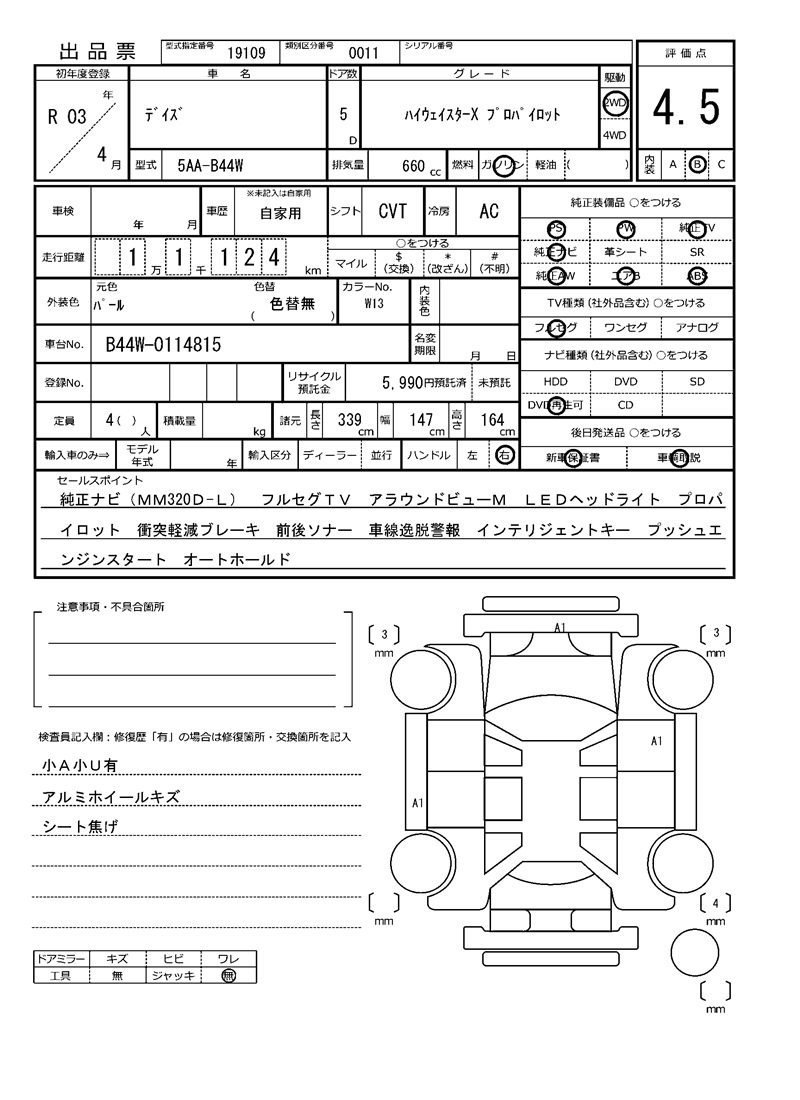 出品票
型式指定番号 19109 類別区分番号 0011 シリアル番号
評価点
4.5
内装 A B C
初年度登録 車名 ドア数 グレード 駆動
R 03 年 4 月
デイズ 5 D ハイウェイスターX プロパイロット 2WD
4WD
型式 5AA-B44W 排気量 660 cc 燃料 ガソリン 軽油 ( )
車検 年 月 車歴 ※未記入は自家用 自家用 シフト CVT 冷房 AC
走行距離 1 万 1 千 1 2 4 km
○をつける
マイル $ (交換) * (改ざん) # (不明)
外装色 元色 パール 色替 色替無 ( ) カラーNo. W13 内装色
車台No. B44W-0114815 名変期限 月 日
登録No. リサイクル預託金 5,990円預託済 未預託
定員 4 ( ) 人 積載量 kg 諸元 長さ 339 cm 幅 147 cm 高さ 164 cm
輸入車のみ⇒ モデル年式 年 輸入区分 ディーラー 並行 ハンドル 左 右
純正装備品 ○をつける
PS PW 純正TV
純正ナビ 革シート SR
純正AW エアB ABS
TV種類 (社外品含む) ○をつける
フルセグ ワンセグ アナログ
ナビ種類 (社外品含む) ○をつける
HDD DVD SD
DVD再生可 CD
後日発送品 ○をつける
新車保証書 車輌取説
セールスポイント
純正ナビ(MM320D-L) フルセグTV アラウンドビューM LEDヘッドライト プロパ
イロット 衝突軽減ブレーキ 前後ソナー 車線逸脱警報 インテリジェントキー プッシュエ
ンジンスタート オートホールド
注意事項・不具合箇所
検査員記入欄:修復歴「有」の場合は修復箇所・交換箇所を記入
小A小U有
アルミホイールキズ
シート焦げ
ドアミラー キズ ヒビ ワレ
工具 無 ジャッキ 無
3 mm
A1
3 mm
A1
A1
mm
4 mm
mm